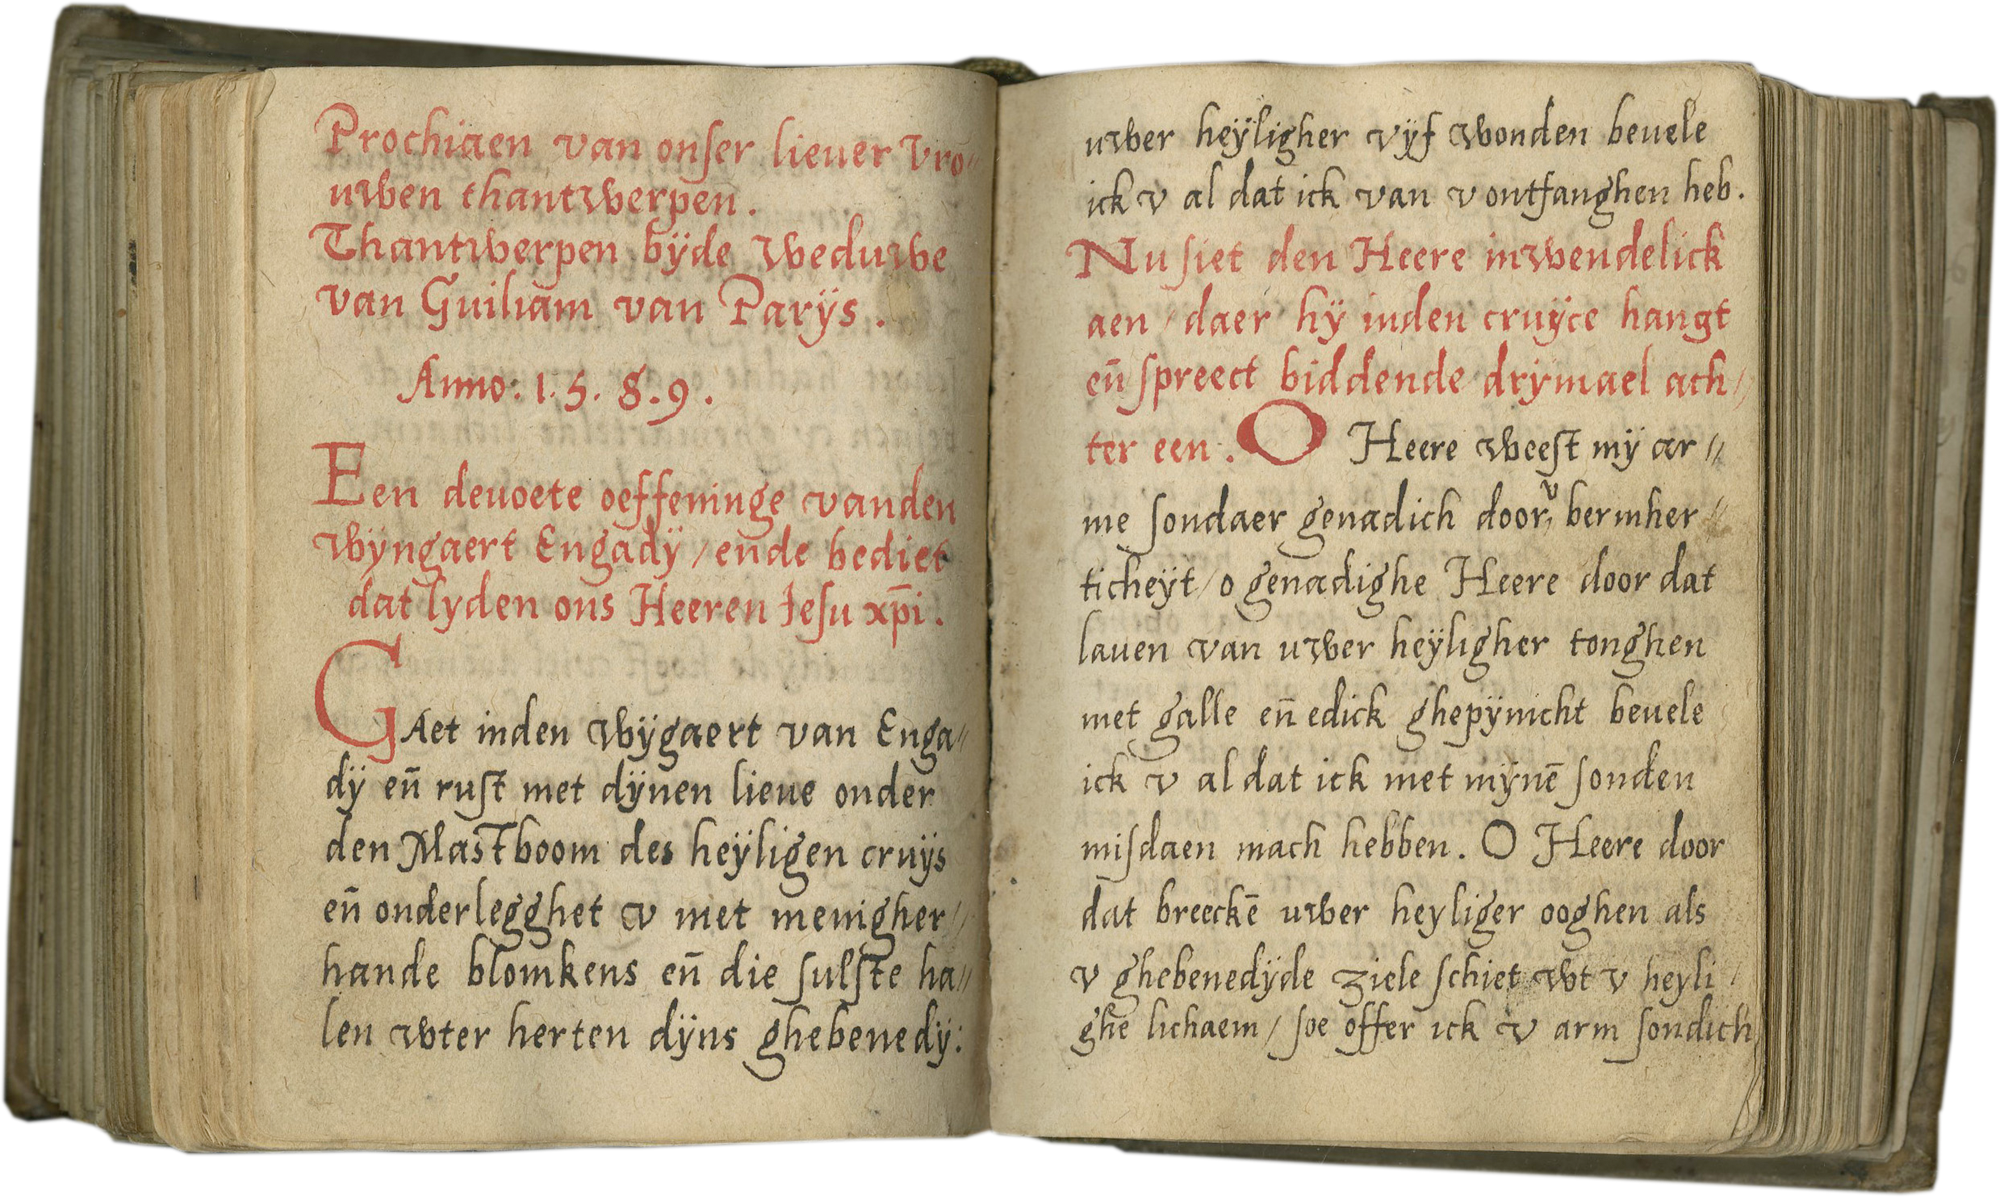 Prochiaen van onser lieuer Vro-
uwen thantwerpen.
Thantwerpen bÿde weduwe
van Guiliam van Parÿs.
Anno: 1.5.8.9.
Een deuoete oeffeninge vanden
wÿngaert Engadÿ / ende bediet
dat lyden ons Heeren Iesu xp̄i.
GAet inden wÿgaert van Enga//
dÿ en̄ rust met dÿnen lieue onder
den Mastboom des heÿligen cruÿs
en̄ onderlegghet v met menigher//
hande blomkens en̄ die sulfte ha//
len wter herten dÿns ghebenedÿ:
uwer heÿligher vÿf wonden beuele
ick v al dat ick van v ontfanghen heb.
Nu siet den Heere inwendelick
aen / daer hÿ inden cruÿce hangt
en̄ spreect biddende drÿmael ach/
ter een. O Heere weest mÿ ar//
me sondaer genadich door v bermher//
ticheÿt / o genadighe Heere door dat
lauen van uwer heÿligher tonghen
met galle en̄ edick ghepÿnicht beuele
ick v al dat ick met mÿnē sonden
misdaen mach hebben. O Heere door
dat breeckē uwer heyliger ooghen als
v ghebenedÿde ziele schiet wt v heyli/
ghe lichaem / soe offer ick v arm sondich